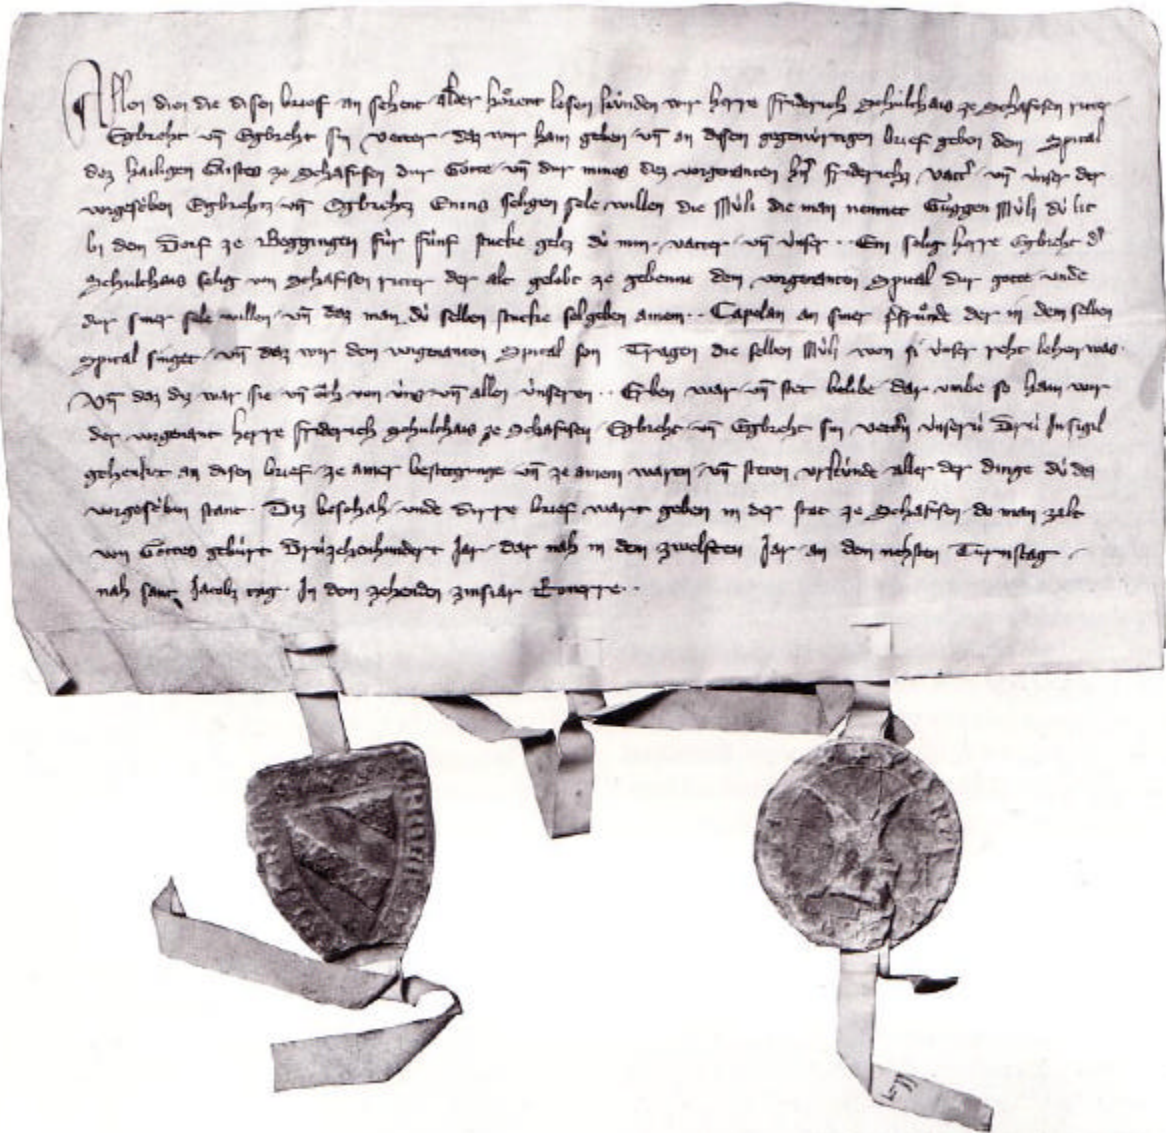 Allen dien die disen brief an sehent alder hoͤrent lesen kuͥnden wir herre Friderich Schulthais ze Schafusen ritter
Egbreht vn̄ Egbreht sin vetter daz wir hain geben vn̄ an disen gegenwuͥrtigen brief geben dem Spital
dez hailigen Gaistes ze Schafusen dur Gotte vn̄ dur mines dez vorgenanten h̄n Friderichz vatt̓ vn̄ uͥnser der
vorgeseben Egbrehtz vn̄ Egbrehtz Enins seligen sele willen die Muͥli die man nemmet Guggen Muͥli duͥ lit
bi dem Dorf ze Beggingen fuͥr fuͥnf stucke geltz duͥ min vatter vn̄ uͥnser ·· Eni selig herre Egbreht d̓
Schulthais selig von Schafusen ritter der alt gelobt ze gebenne dem vorgenanten Spital dur gotte unde
dur siner sele willen vn̄ daz man duͥ selben stucke sol geben ainem ·· Capelan an siner pfruͦnde der in dem selben
Spital singet vn̄ daz wir dem vorgenanten Spital son Tragen die selben Muͥli won si uͥnser reht lehen was·
Vn̄ daz diz war sie vn̄ oͧh von uͥns vn̄ allen uͥnseren ·· Erben war vn̄ stet belibe dar umbe so hain wir
der vorgenant herre Friderich Schulthais ze Schafusen Egbreht vn̄ Egbreht sin vett̓n uͥnseruͥ Druͥ Insigil
gehenket an disen brief ze ainer bestetgunge vn̄ ze ainem waren vn̄ steten urkuͥnde aller der dinge duͥ da
vorgeseͥben stant· Diz beschah unde dirre brief wart geben in der stat ze Schafusen do man zalt
von Gottes gebuͥrt Druͥzehenhundert Jar dar nah in dem zwelften Jar an dem nehsten Tuͥrnstag
nah sant Jacobz tag· In dem zehenden zinsiar Romerre··